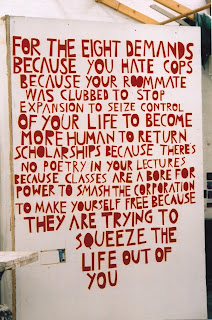 FOR THE EIGHT DEMANDS
BECAUSE YOU HATE COPS
BECAUSE YOUR ROOMMATE
WAS CLUBBED TO STOP
EXPANSION TO SEIZE CONTROL
OF YOUR LIFE TO BECOME
MORE HUMAN TO RETURN
SCHOLARSHIPS BECAUSE THERE'S
NO POETRY IN YOUR LECTURES
BECAUSE CLASSES ARE A BORE FOR
POWER TO SMASH THE CORPORATION
TO MAKE YOURSELF FREE BECAUSE
THEY ARE TRYING TO
SQUEEZE THE
LIFE OUT OF
YOU